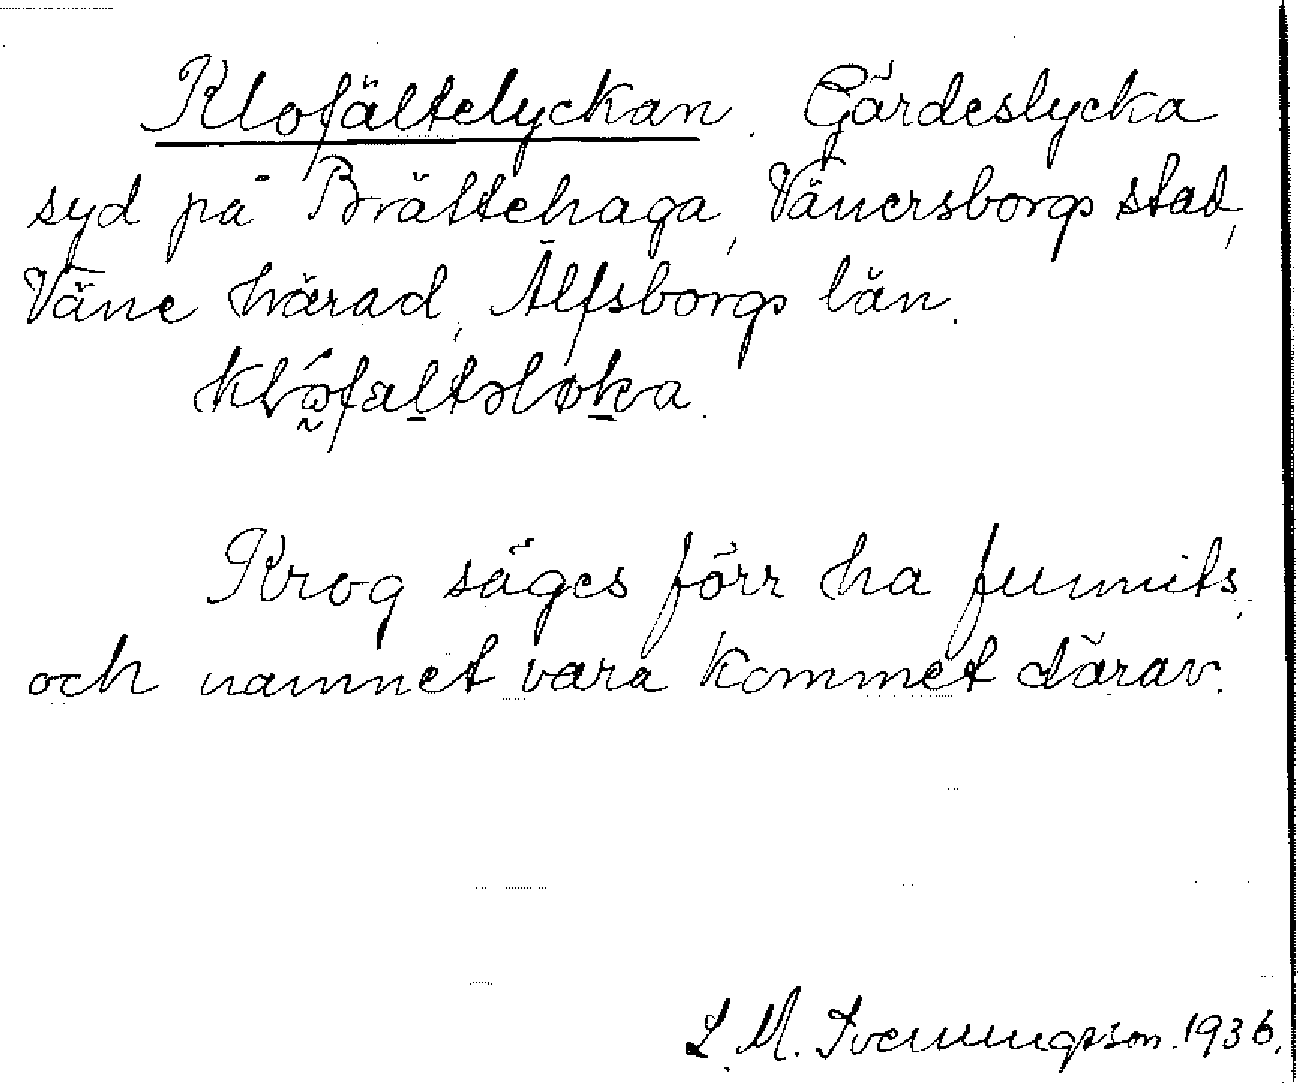 Klofältelyckan. Gärdeslycka
syd på Brättehaga, Vänersborgs stad,
Väne härad, Älfsborgs län.
Krog säges förr ha funnits,
och namnet vara kommet därav.
L. M. Svenungsson. 1936.